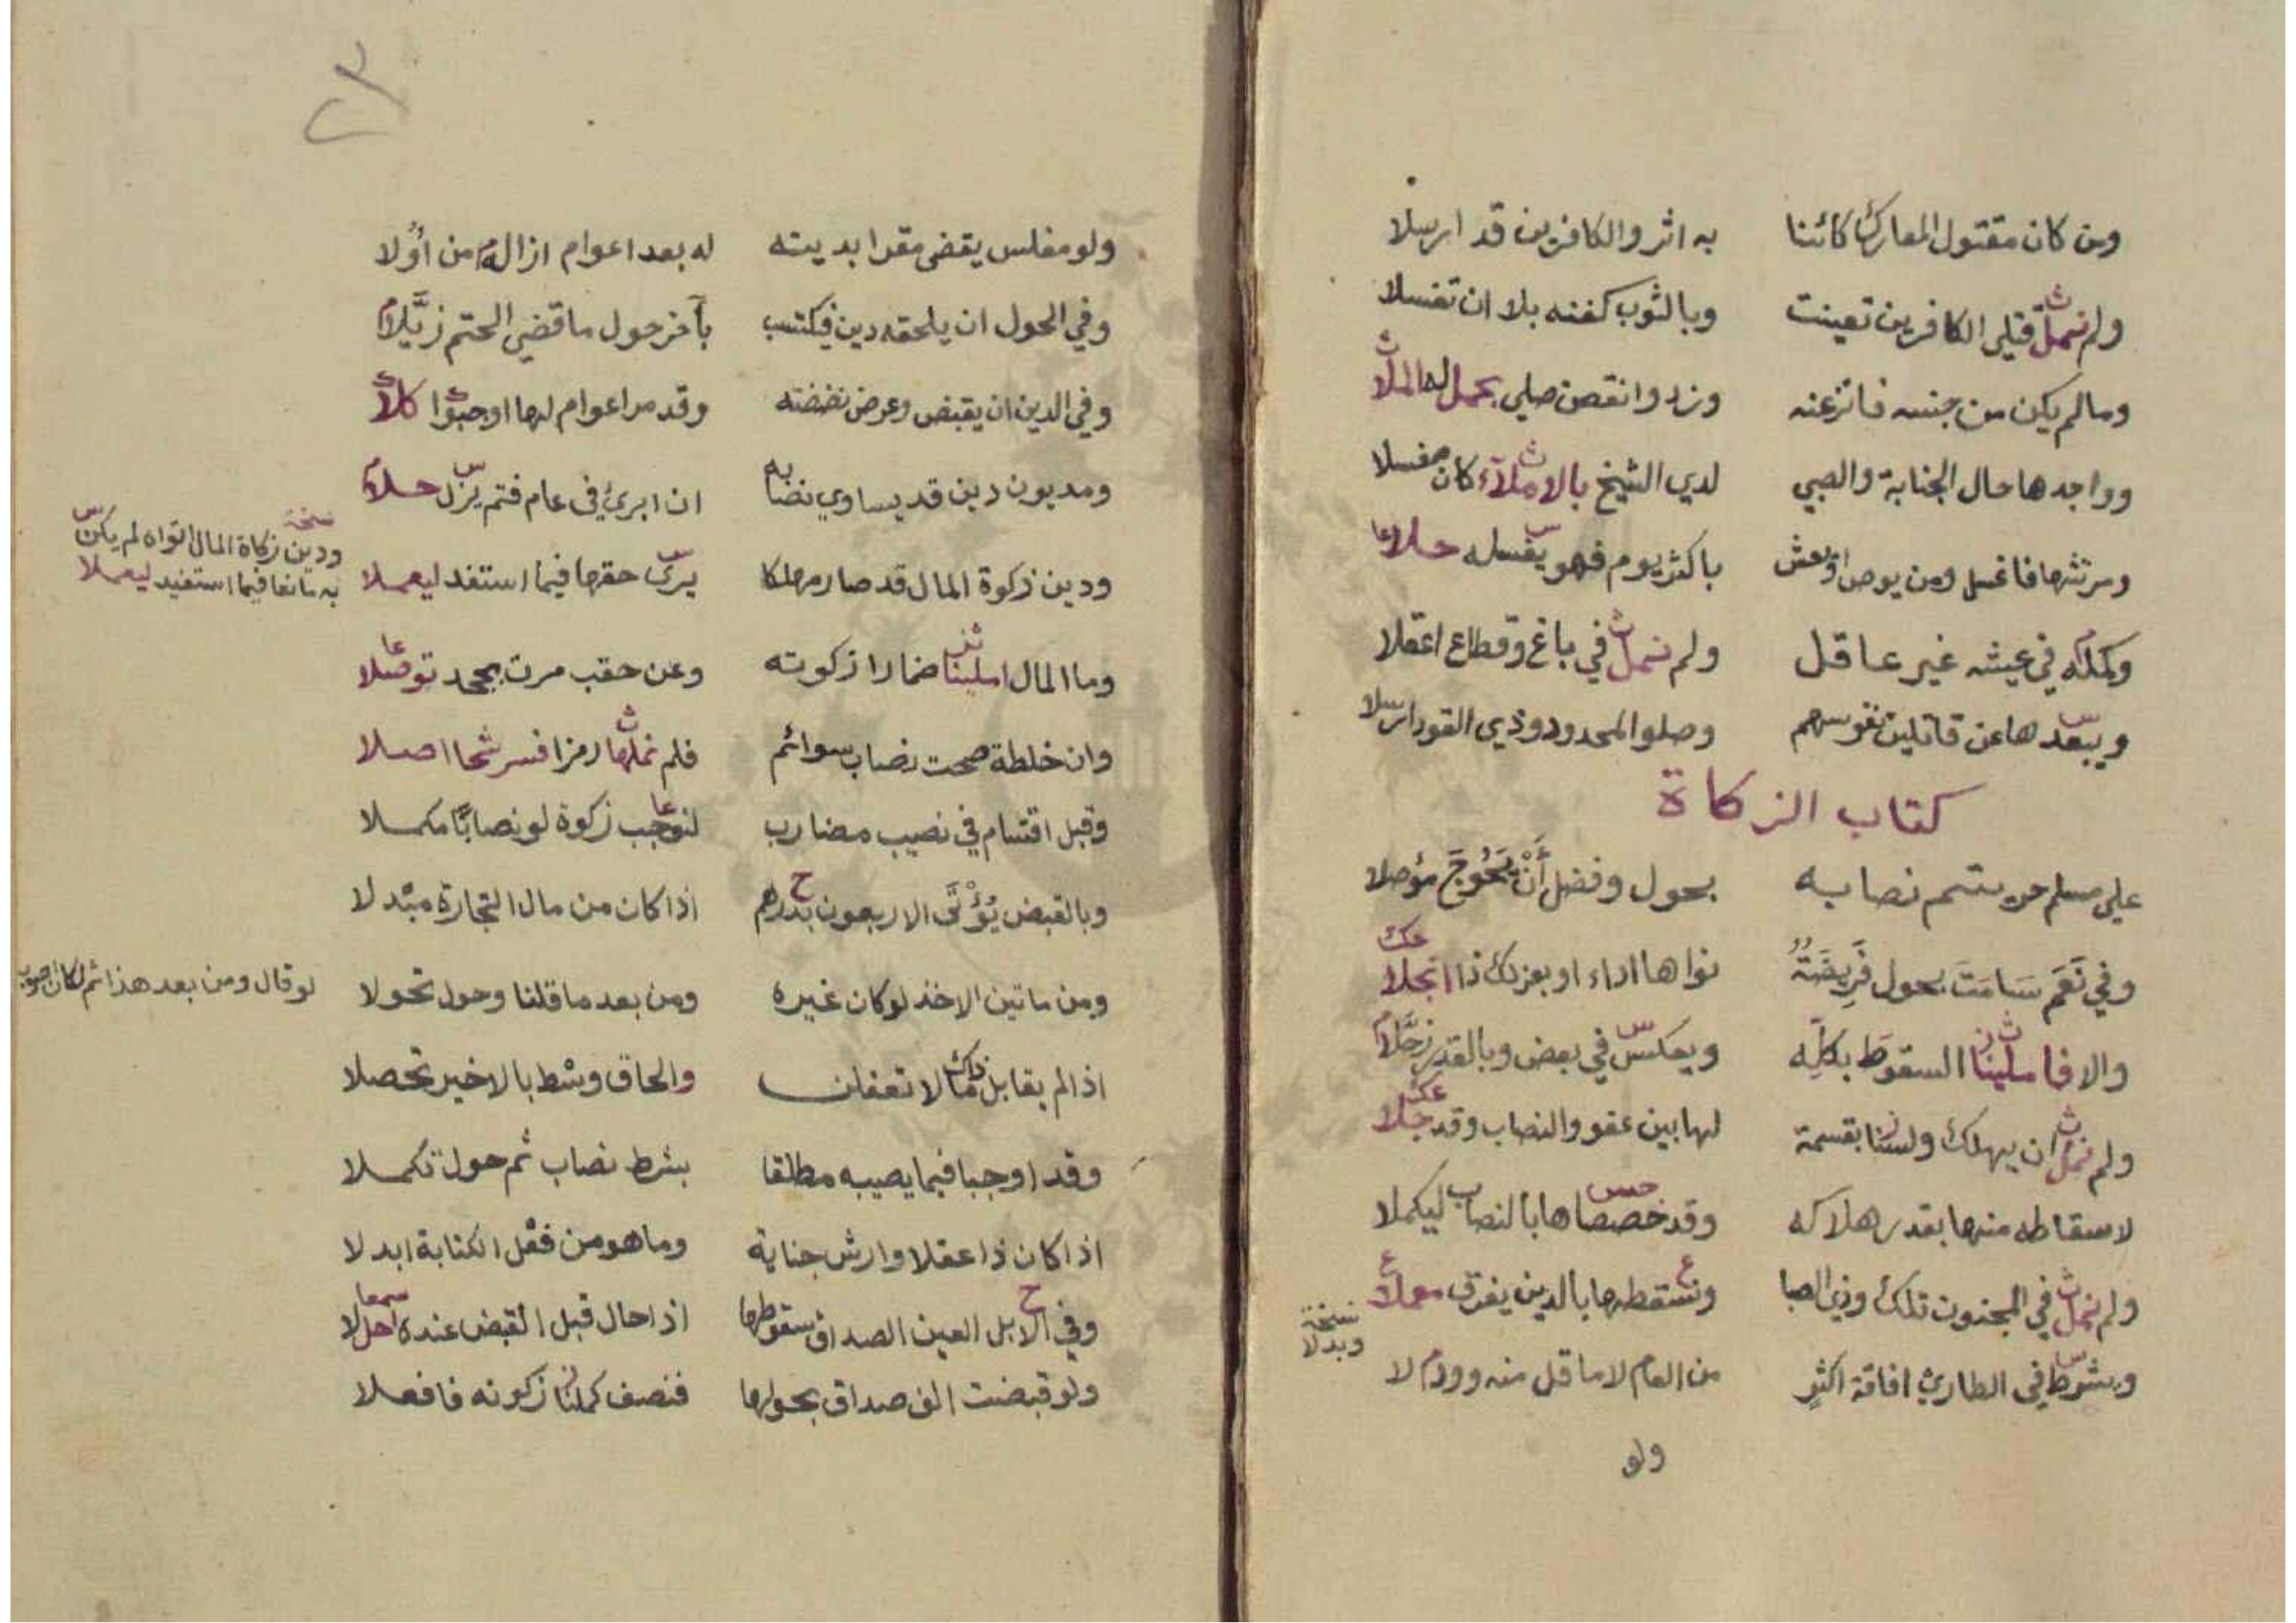 ومن كان مقتول المعارك كائنا به اثر والكافرين قد ارسلا
ولم نمل قتلى الكافرين تعينت وبالثوب كفنه بلا ان تغسلا
ومالم يكن من جنسه فانزعنه وزد وانقصن صلى بحمل له الملا
وواجدها حال الجنابة والصبي لدي الشيخ بالاملآء كان مغسلا
ومرتثها فاغسل ومن يوص او يعش باكثر يوم فهو يغسله حلا
في عيشه غير عاقل ولم نمل في باغ وقطاع اعقلا
ويبعدها عن قاتلين نفوسهم وصلوا المحدود وذي القود ارسلا
كتاب الزكاة
على مسلم حر يتم نصابه بحول وفضل أن يحوج مؤصلا
وفي نعم سامت بحول فريضة نواها اداء او بعزلك ذا انجلا
والا فاملينا السقوط بكله ويعكس في بعض وبالقدر
ولم نمل ان يهلك ولسنا بقسمة لها بين عفو والنصاب وقد جلا
لاسقاطه منها بقدر هلاكه وقد خصصاها بالنصاب ليكملا
ولم نمل في المجنون تلك وذي الصبا ونسقطها بالدين يفرق معملا
نسخة
وبدلا
ويشرط في الطارئ افاقة اكثر من العام لا ما قل منه
ولو
ولو مفلس يقضى مقرا بديته له بعد اعوام ازال من اولا
وفي الحول ان يلحقه دين فيكتسب بآخر حول ما قضى الحتم زيلا
وفي الدين ان يقبض وعرض نضضته وقد مر اعوام لها اوجبوا كلا
ومديون دين قد يساوي نضابه ان ابرئ في عام فتم يزل حلا
ودين زكوة المال قد صار مهلكا يرى حقها فيما استفد ليعملا
نسخة
ودين زكاة المال اتواه لم يكن
به مانعا فيما استفيد ليعملا
وما المال املينا ضمارا زكوته وعن حقب مرت بجحد توصلا
وان خلطة صحت نصاب سوائم فلم نملها رمزا فسر شحا اصلا
وقبل اقتسام في نصيب مضارب لنوجب زكوة لو نصابا مكملا
وبالقبض يؤتى الاربعون بدرهم اذا كان من مال التجارة مبدلا
ومن ماتين الاخذ لو كان غيره ومن بعد ما قلنا وحول تحولا
لو قال ومن بعد هذا ثم لكان اصوب
اذا لم يقابل والحاق وشط بالاخير تحصلا
وقد اوجبا فيما يصيبه مطلقا بشرط نصاب ثم حول تكملا
اذا كان ذا عقلا وارش جناية وما هو من فعل الكتابة ابدلا
وفي الابل العين الصداق سقوطها اذا حال قبل القبض عنده احللا
ولو قبضت الف صداق بحولها فنصف كملنا زكوته فافعلا